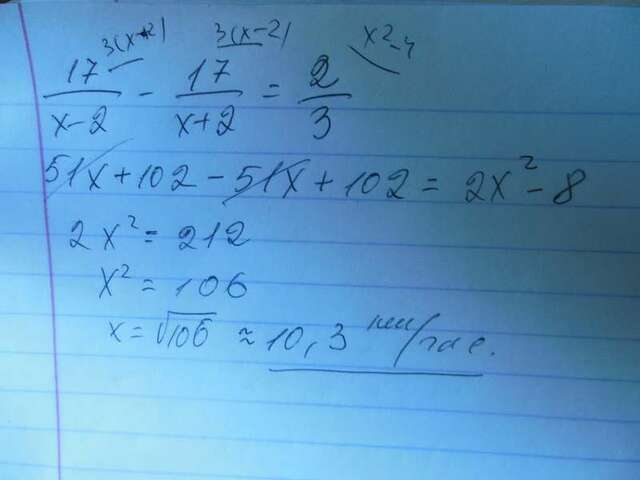 3(x+2) 3(x-2) x²-4
17/x-2 - 17/x+2 = 2/3
51x+102-51x+102=2x²-8
2x²=212
x²=106
x=√106 ≈ 10,3 км/час.